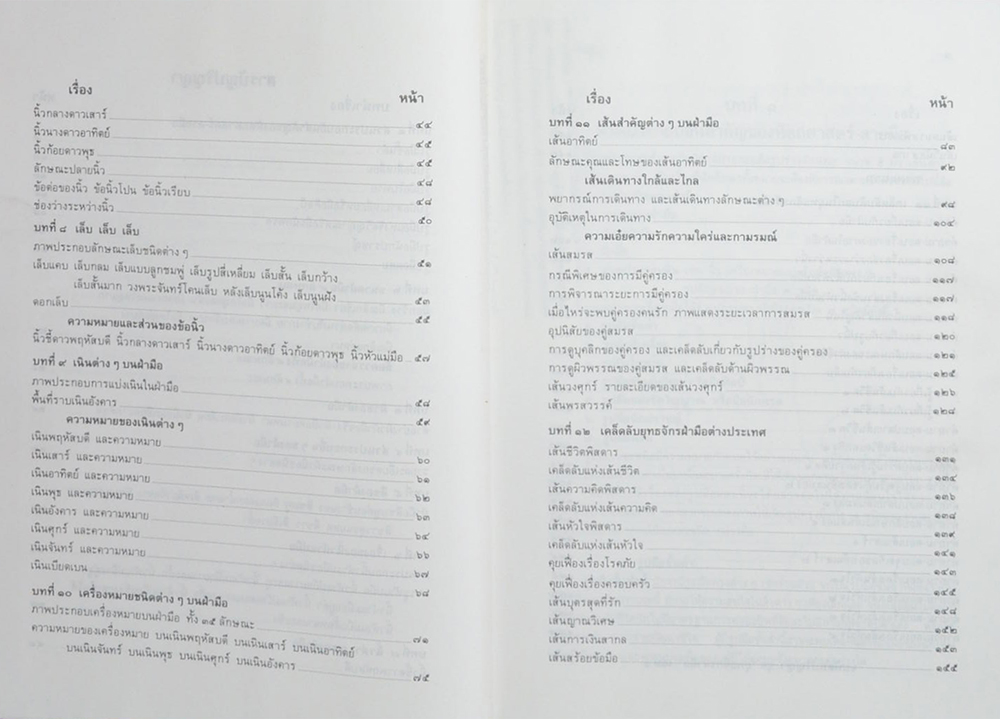 เรื่อง หน้า
นิ้วกลางดาวเสาร์ ๔๔
นิ้วนางดาวอาทิตย์ ๔๕
นิ้วก้อยดาวพุธ ๔๕
ลักษณะปลายนิ้ว ๔๘
ข้อต่อของนิ้ว ข้อนิ้วโปน ข้อนิ้วเรียบ ๔๘
ช่องว่างระหว่างนิ้ว ๕๐
บทที่ ๘ เล็บ เล็บ เล็บ
ภาพประกอบลักษณะเล็บชนิดต่าง ๆ ๕๑
เล็บแคบ เล็บกลม เล็บแบบลูกชมพู่ เล็บรูปสี่เหลี่ยม เล็บสั้น เล็บกว้าง
เล็บสั้นมาก วงพระจันทร์โคนเล็บ หลังเล็บนูนโค้ง เล็บนูนฝัง ๕๓
ดอกเล็บ ๕๕
ความหมายและส่วนของข้อนิ้ว
นิ้วชี้ดาวพฤหัสบดี นิ้วกลางดาวเสาร์ นิ้วนางดาวอาทิตย์ นิ้วก้อยดาวพุธ นิ้วหัวแม่มือ ๕๗
บทที่ ๙ เนินต่าง ๆ บนฝ่ามือ
ภาพประกอบการแบ่งเนินในฝ่ามือ ๕๘
พื้นที่ราบเนินอังคาร ๕๙
ความหมายของเนินต่าง ๆ
เนินพฤหัสบดี และความหมาย ๖๐
เนินเสาร์ และความหมาย ๖๑
เนินอาทิตย์ และความหมาย ๖๒
เนินพุธ และความหมาย ๖๓
เนินอังคาร และความหมาย ๖๔
เนินศุกร์ และความหมาย ๖๖
เนินจันทร์ และความหมาย ๖๗
เนินเบียดเบน ๖๘
บทที่ ๑๐ เครื่องหมายชนิดต่าง ๆ บนฝ่ามือ
ภาพประกอบเครื่องหมายบนฝ่ามือ ทั้ง ๓๕ ลักษณะ ๗๑
ความหมายของเครื่องหมาย บนเนินพฤหัสบดี บนเนินเสาร์ บนเนินอาทิตย์
บนเนินจันทร์ บนเนินพุธ บนเนินศุกร์ บนเนินอังคาร ๗๕
เรื่อง หน้า
บทที่ ๑๑ เส้นสำคัญต่าง ๆ บนฝ่ามือ
เส้นอาทิตย์ ๘๓
ลักษณะคุณและโทษของเส้นอาทิตย์ ๙๒
เส้นเดินทางใกล้และไกล
พยากรณ์การเดินทาง และเส้นเดินทางลักษณะต่าง ๆ ๙๘
อุบัติเหตุในการเดินทาง ๑๐๔
ความเอ๋ยความรักความใคร่และกามรมณ์
เส้นสมรส ๑๐๘
กรณีพิเศษของการมีคู่ครอง ๑๑๗
การพิจารณาระยะการมีคู่ครอง ๑๑๗
เมื่อใหร่จะพบคู่ครองคนรัก ภาพแสดงระยะเวลาการสมรส ๑๑๘
อุปนิสัยของคู่สมรส ๑๒๐
การดูบุคลิกของคู่ครอง และเคล็ดลับเกี่ยวกับรูปร่างของคู่ครอง ๑๒๑
การดูผิวพรรณของคู่สมรส และเคล็ดลับด้านผิวพรรณ ๑๒๕
เส้นวงศุกร์ รายละเอียดของเส้นวงศุกร์ ๑๒๖
เส้นพรสวรรค์ ๑๒๘
บทที่ ๑๒ เคล็ดลับยุทธจักรฝ่ามือต่างประเทศ
เส้นชีวิตพิสดาร ๑๓๑
เคล็ดลับแห่งเส้นชีวิต ๑๓๔
เส้นความคิดพิสดาร ๑๓๖
เคล็ดลับแห่งเส้นความคิด ๑๓๘
เส้นหัวใจพิสดาร ๑๓๙
เคล็ดลับแห่งเส้นหัวใจ ๑๔๑
คุยเฟื่องเรื่องโรคภัย ๑๔๓
คุยเฟื่องเรื่องครอบครัว ๑๔๕
เส้นบุตรสุดที่รัก ๑๔๘
เส้นญาณวิเศษ ๑๕๒
เส้นการเงินสากล ๑๕๓
เส้นสร้อยข้อมือ ๑๕๕